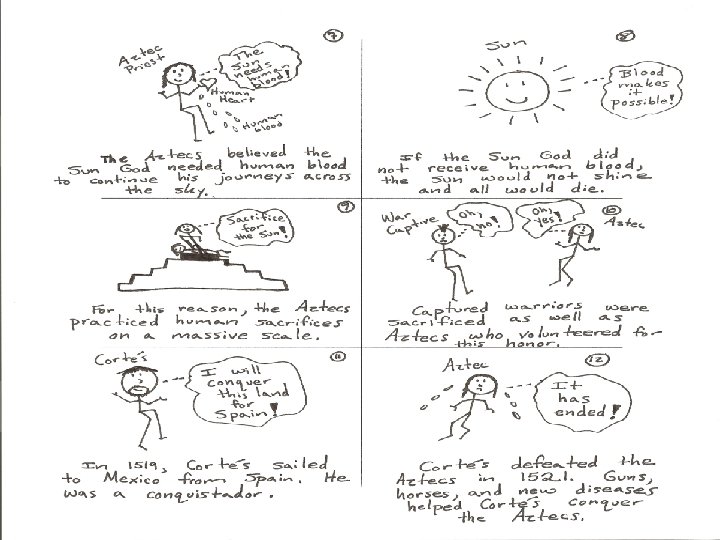 7
Aztec
Priest
The
Sun
needs
human
blood!
Human
Heart
Human
blood
The Aztecs believed the
Sun God needed human blood
to continue his journeys across
the sky.
8
Sun
Blood
makes
it
possible!
If the Sun God did
not receive human blood,
the sun would not shine
and all would die.
9
Sacrifice
for
the Sun!
For this reason, the Aztecs
practiced human sacrifices
on a massive scale.
10
War
Captive
Oh,
no!
Oh,
yes!
Aztec
Captured warriors were
sacrificed as well as
Aztecs who volunteered for
this honor.
11
Cortés
I will
conquer
this land
for
Spain!
In 1519, Cortés sailed
to Mexico from Spain. He
was a conquistador.
12
Aztec
It
has
ended!
Cortés defeated the
Aztecs in 1521. Guns,
horses, and new diseases
helped Cortés conquer
the Aztecs.